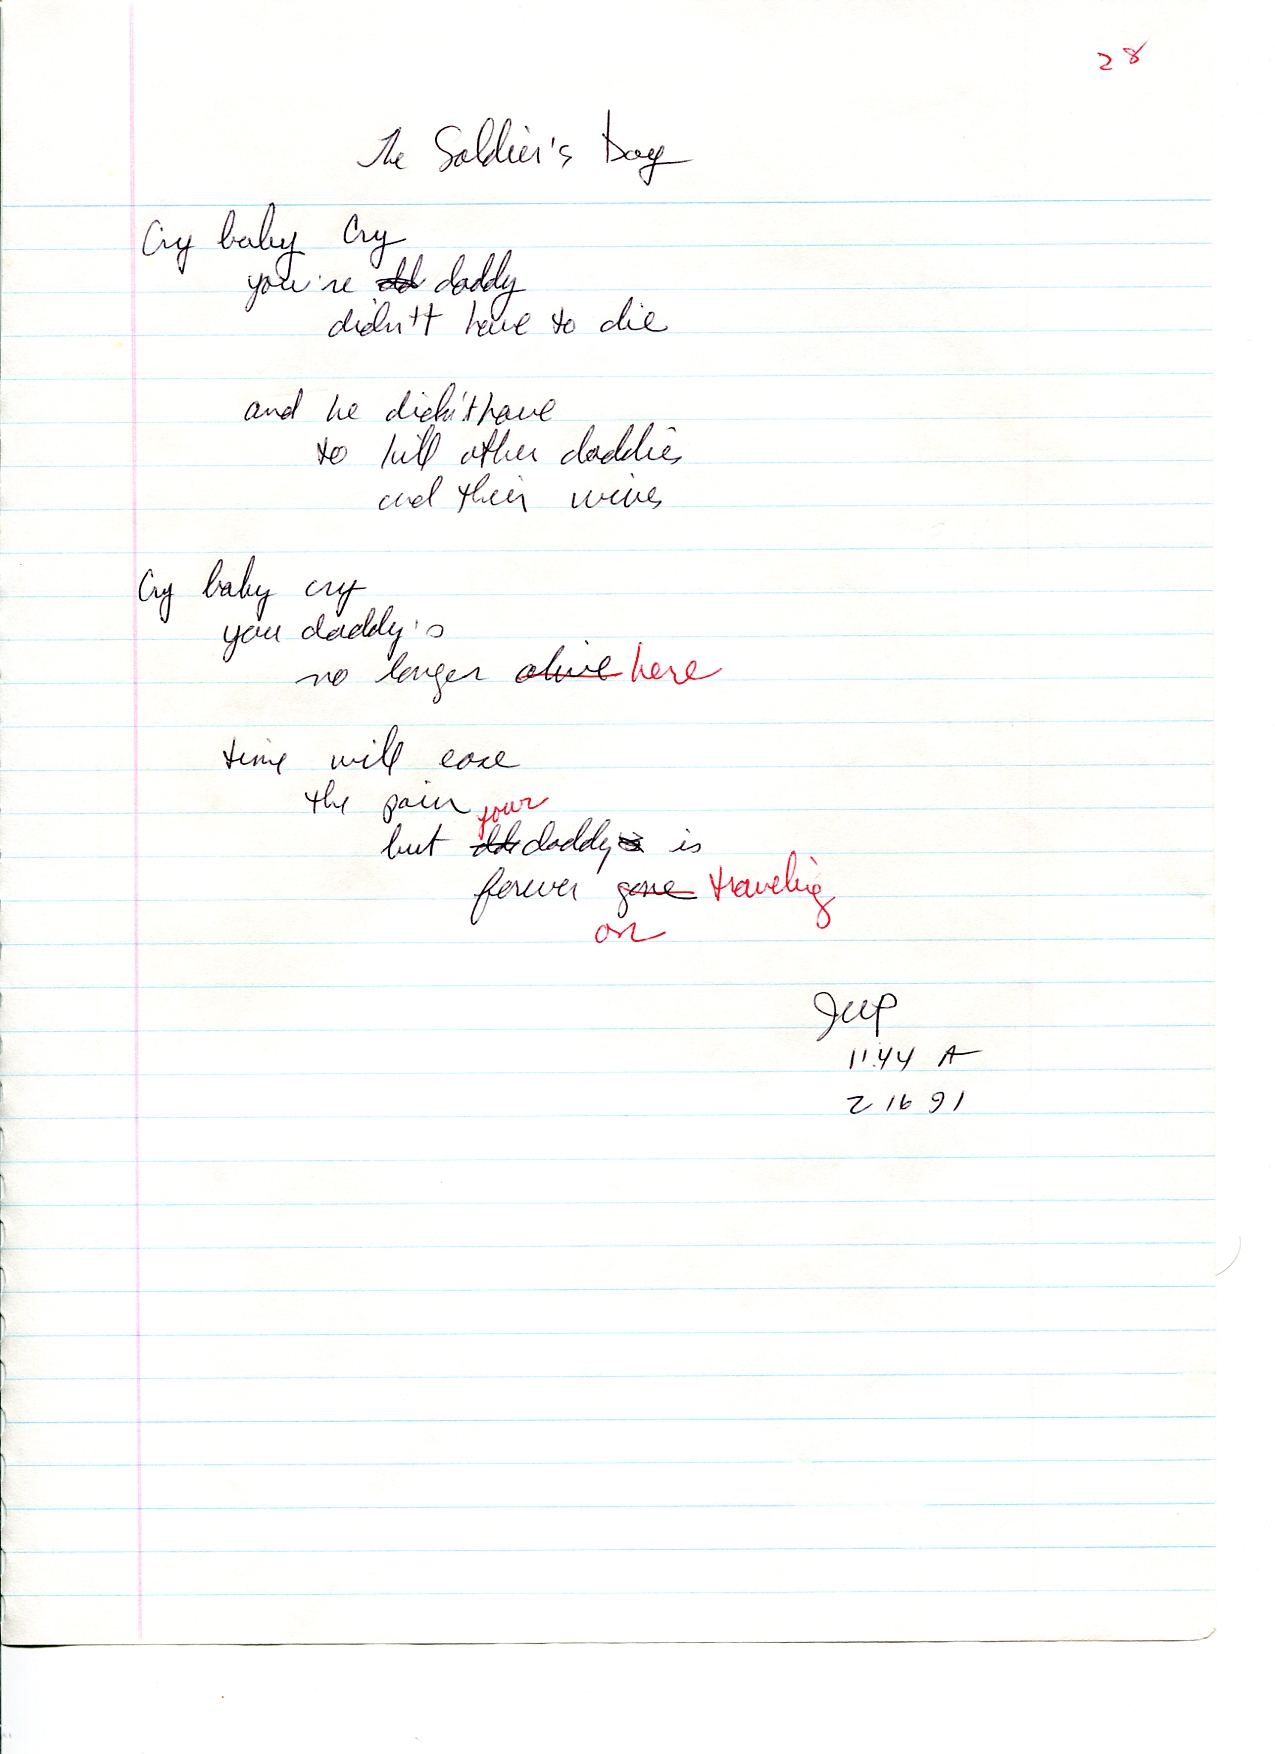 28
The Soldier's Day
Cry baby Cry
you're daddy
didn't have to die
and he didn't have
to kill other daddies
and their wives
Cry baby cry
you daddy's
no longer alive here
time will ease
the pain
your
but daddy is
forever gone traveling
on
JWP
11:44 A
2 16 91